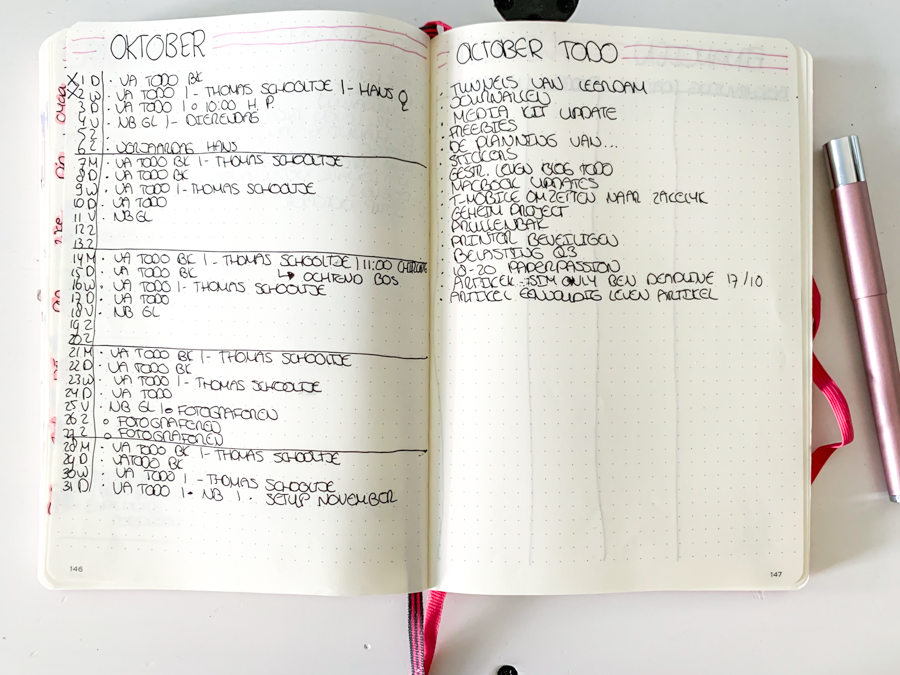 OKTOBER
X 1 D · VA TODO BK
X 2 W · VA TODO | - THOMAS SCHOOLTJE | - HANS
3 D · VA TODO | o 10:00 H.P.
4 V · NB GL | - DIERENDAG
5 Z
6 Z · VERJAARDAG HANS
7 M · VA TODO BK | - THOMAS SCHOOLTJE
8 D · VA TODO BK
9 W · VA TODO | - THOMAS SCHOOLTJE
10 D · VA TODO
11 V · NB GL
12 Z
13 Z
14 M · VA TODO BK | - THOMAS SCHOOLTJE | 11:00
15 D · VA TODO BK ↳ OCHTEND BOS
16 W · VA TODO | - THOMAS SCHOOLTJE
17 D · VA TODO
18 V · NB GL
19 Z
20 Z
21 M · VA TODO BK | - THOMAS SCHOOLTJE
22 D · VA TODO BK
23 W · VA TODO | - THOMAS SCHOOLTJE
24 D · VA TODO
25 V · NB GL | o FOTOGRAFEREN
26 Z o FOTOGRAFEREN
27 Z o FOTOGRAFEREN
28 M · VA TODO BK | - THOMAS SCHOOLTJE
29 D · VA TODO BK
30 W · VA TODO | - THOMAS SCHOOLTJE
31 D · VA TODO | · NB | · SETUP NOVEMBER
146
OCTOBER TODO
· TUNNELS VAN LEERDAM
· JOURNALLEN
· MEDIA KIT UPDATE
· FREEBIES
· DE PLANNING VAN...
· STICKERS
· GESTR. LEVEN BLOG TODO
· MACBOOK UPDATES
· T-MOBILE OMZETTEN NAAR ZAKELIJK
· GEHEIM PROJECT
· PRULLENBAK
· PRINTER BEVEILIGEN
· BELASTING Q3
· 18-20 PAPERPASSION
· ARTIKEL: SIM ONLY BEN DEADLINE 17/10
· ARTIKEL EENVOUDIG LEVEN ARTIKEL
147